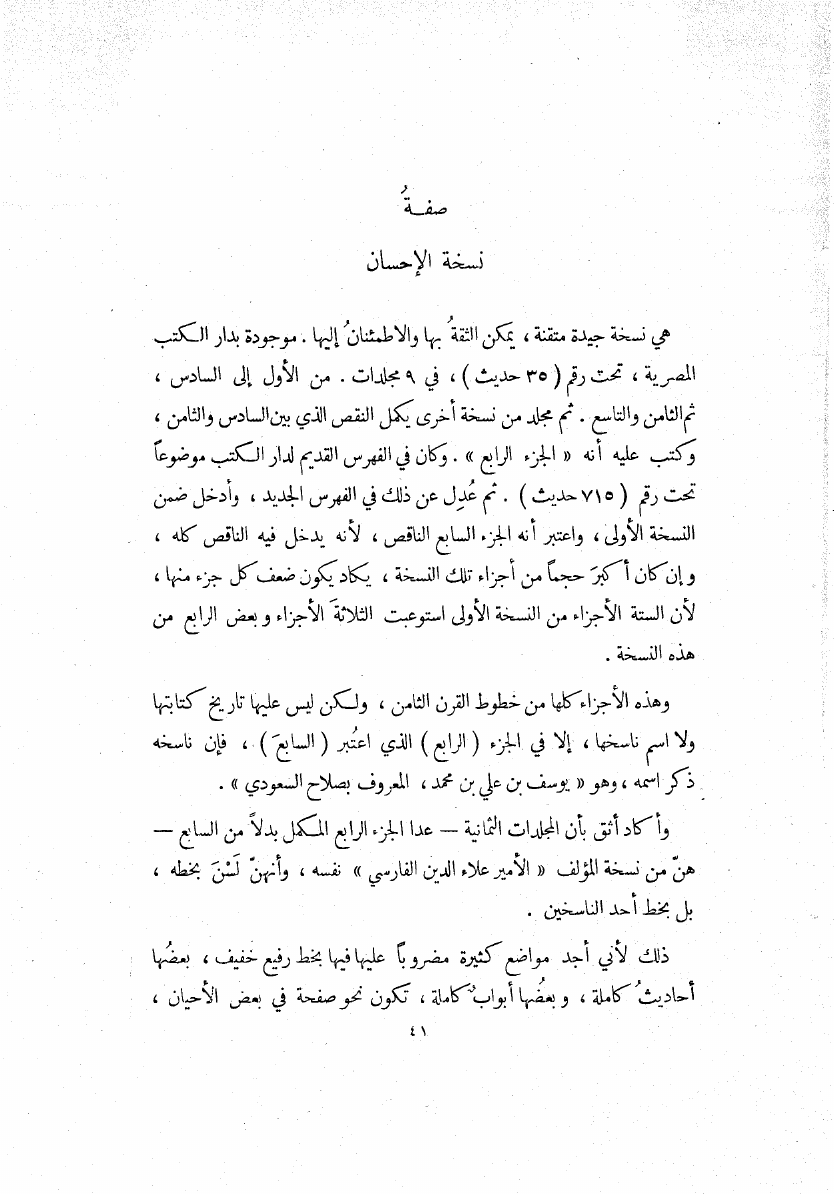 صفـةُ
نسخة الإحسان
هي نسخة جيدة متقنة ، يمكن الثقةُ بها والاطمئنانُ إليها . موجودة بدار الكتب
المصرية ، تحت رقم ( ٣٥ حديث ) ، في ٩ مجلدات . من الأول إلى السادس ،
ثم الثامن والتاسع . ثم مجلد من نسخة أخرى يكمل النقص الذي بين السادس والثامن ،
وكتب عليه أنه « الجزء الرابع » . وكان في الفهرس القديم لدار الكتب موضوعاً
تحت رقم ( ٧١٥ حديث ) . ثم عُدِل عن ذلك في الفهرس الجديد ، وأدخل ضمن
النسخة الأولى ، واعتبر أنه الجزء السابع الناقص ، لأنه يدخل فيه الناقص كله ،
وإن كان أكبرَ حجماً من أجزاء تلك النسخة ، يكاد يكون ضعف كل جزء منها ،
لأن الستة الأجزاء من النسخة الأولى استوعبت الثلاثةَ الأجزاء وبعض الرابع من
هذه النسخة .
وهذه الأجزاء كلها من خطوط القرن الثامن ، ولكن ليس عليها تاريخ كتابتها
ولا اسم ناسخها ، إلا في الجزء ( الرابع ) الذي اعتُبر ( السابعَ ) ، فإن ناسخه
ذكر اسمه ، وهو « يوسف بن علي بن محمد ، المعروف بصلاح السعودي » .
وأكاد أثق بأن المجلدات الثمانية — عدا الجزء الرابع المكمل بدلاً من السابع —
هنّ من نسخة المؤلف « الأمير علاء الدين الفارسي » نفسه ، وأنهنّ لَسْنَ بخطه ،
بل بخط أحد الناسخين .
ذلك لأني أجد مواضع كثيرة مضروباً عليها فيها بخط رفيع خفيف ، بعضُها
أحاديثُ كاملة ، وبعضُها أبوابٌ كاملة ، تكون نحو صفحة في بعض الأحيان ،
٤١